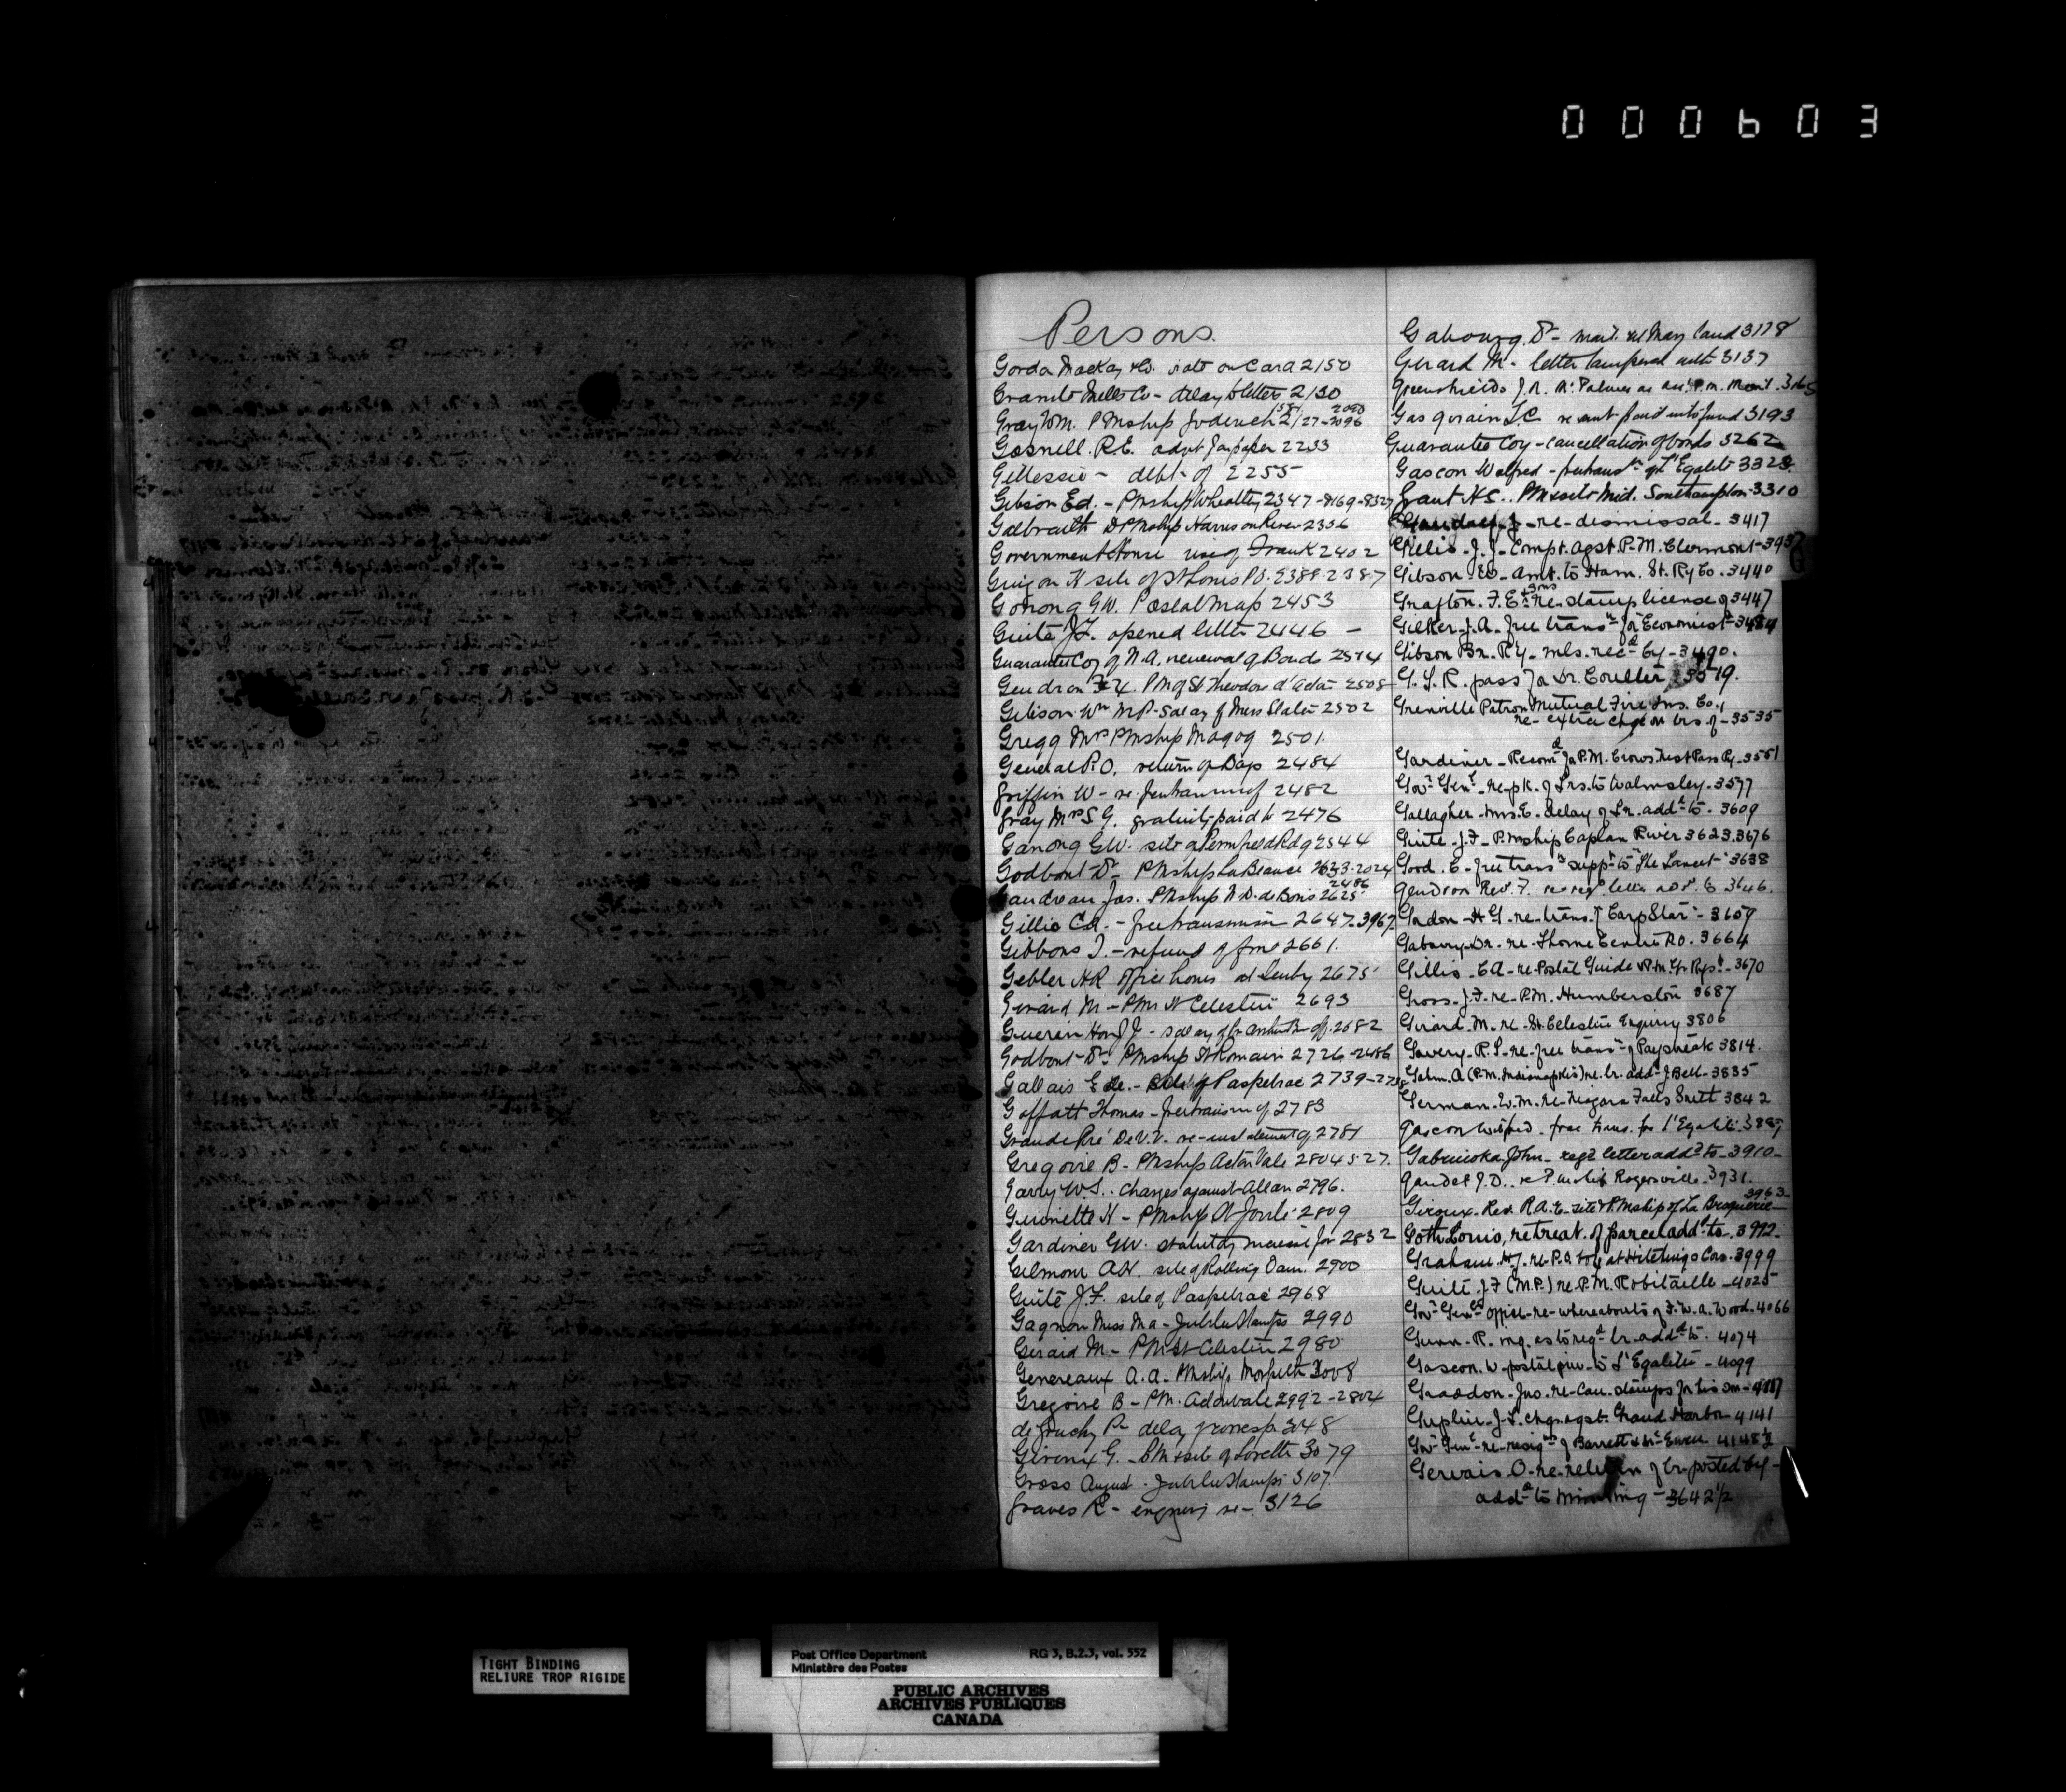 000603
Persons.
Gordon Mackay & Co. note on Card 2150
Granite Mills Co - delay to letters 2130
Gray Wm. PMship Goderich 2127-2096
Gosnell. R.E. advt for paper 2233
Gillessie - debt of 2255
Gibson Ed. - PMship Wheatley 2347-8169-8327
Galbraith D PMship Harrison River 2356
Government House use of Frank 2402
Guigon H site of St Louis PO. 2389-2387
Gonong GW. Postal map 2453
Guité J.F. opened letter 2446 -
Guarantee Coy of N.A. renewal of Bonds 2574
Gendron PM of St Theodore d'Acton 2508
Gibson Wm MP. Salary of Miss Slater 2502
Gregg Mrs PMship Magog 2501.
General P.O. return of Bags 2484
Griffin W - re 2482
Gray Mrs S G. gratuity paid to 2476
Ganong GW. site of Pennfield Rdg 2544
Godbout Dr PMship La Beauce 2024
Gaudreau Jos. PMship N.D. de Bonis 2625 2486
Gillis CA. - free transmission 2647-3967
Gibbons J. - refund of fine 2661.
Gebler HR office hours at 2675
Girard M - PMr St Celestin 2693
Guerin Hon J J - salary of 2682
Godbout Dr PMship St Romain 2726-2486
Gallais E. De. - Site of Paspebiac 2739-2738
Goffatt Thomas - free transm of 2783
Grande Pré De V.V. re-instatement of 2781
Gregoire B - PMship Acton Vale 2804 & 27.
Garry W.S. charges against Allan 2796.
Guimette H - PMship 2809
Gardiner GW. statutory increase for 2832
Gilmour AH. site of Rolling Dam. 2900
Guité J.F. site of Paspebiac 2968
Gagnon Miss Ma - Jubilee Stamps 2990
Girard M. - PM St Celestin 2980
Genereaux A.A - PMship Morpeth 3008
Gregoire B - PM. Actonvale 2992-2804
de Gruchy P - delay of corresp. 3048
Giroux G. - PM & site of Lorette 3079
Gross August - Jubilee Stamps 3107.
Graves R - enquiry re - 3126
Gaboury. Dr - mail Maryland 3178
Gerard M - letter tampered with 3137
Greenshields J.N. McPalmer as asst P.m. Mont. 3165
Gasgrain T.C. re amt paid into fund 3193
Guarantee Coy - cancellation of bonds 3262
Gascon Walfred - free transn of L'Egalité 3323.
Grant H.S. PM & site Mid. Southampton 3310
re-dismissal - 3417
Gillis - J. J - Compt. agst. P.M. Clermont - 393
Gibson - Ed - Amt. to Ham. St. Ry Co. 3440
Grafton. F.E & Sons re-stamp license of 3447
Gilker - J.A. free transn for Economist 3484
Gibson Bn. Ry - mls. recd by - 3490.
G. S. R. pass for Dr. Coulter 3519.
Grenville Patron Mutual Fire Ins. Co.,
re - extra chge on lrs of - 3535
Gardiner - Recomd for P.M. Crows Nest Pass Ry. 3551
Govr Genl. re-pk. of Lrs. to Walmsley - 3577
Gallagher - Mrs. E. delay of Lr. addd to - 3609
Guité - J.F. P.mship Caplan River 3623.3676
Good. E - free transn suppt to "The Lancet" 3638
Gendron Rev. F. re regd letter addd to 3646.
Gordon - H G. re-trans. of "Carp Star" - 3657
Gaboury - Dr. re-Thorne Centre P.O. 3664
Gillis - C A - re-Postal Guide & P.M. Gr. Rept. - 3670
Gross - J.F. re - P.M. Humberston 3687
Girard - M. re - St. Celestin Enquiry 3806
Govery - R.S. re-free transn of Paystreak 3814.
Gahm. A (P.M. Indianapolis) re. lr. addd J Bell - 3835
German - W.M. re-Niagara Falls South 3842
Gascon Wilfred - free trans. for l'Egalité 3887
Gabruioka John - regd letter addd to - 3910 -
Gaudet J.D. re P. mship Rogersville 3931.
Giroux - Rev. R.A.E. site & P.Mship of La Broquerie 3963
Goth Louis, re treat. of parcel addd to 3992.
Graham. H.J. re-P.O. at Hitchings Cors. 3999
Guité. J.F (M.P.) re P.M. Robitaille - 4025
Govr Genls Office - re-whereabouts of F.W.A. Wood - 4066
Gunn - R. enq. as to regd lr. addd to. 4074
Gascon. W - postal priv. to L'Egalité - 4099
Graddon - Jno. re-Can. stamps for his son - 4117
Guptill - J.S. chgs. agst. Grand Harbor 4141
Govr Genl re-resigns of Barrett & McEwen 4148½
Gervais. O. re-return of lr. posted by -
addd to - 3642½
TIGHT BINDING
RELIURE TROP RIGIDE
Post Office Department
Ministère des Postes
RG 3, B.2.3, vol. 552
PUBLIC ARCHIVES
ARCHIVES PUBLIQUES
CANADA